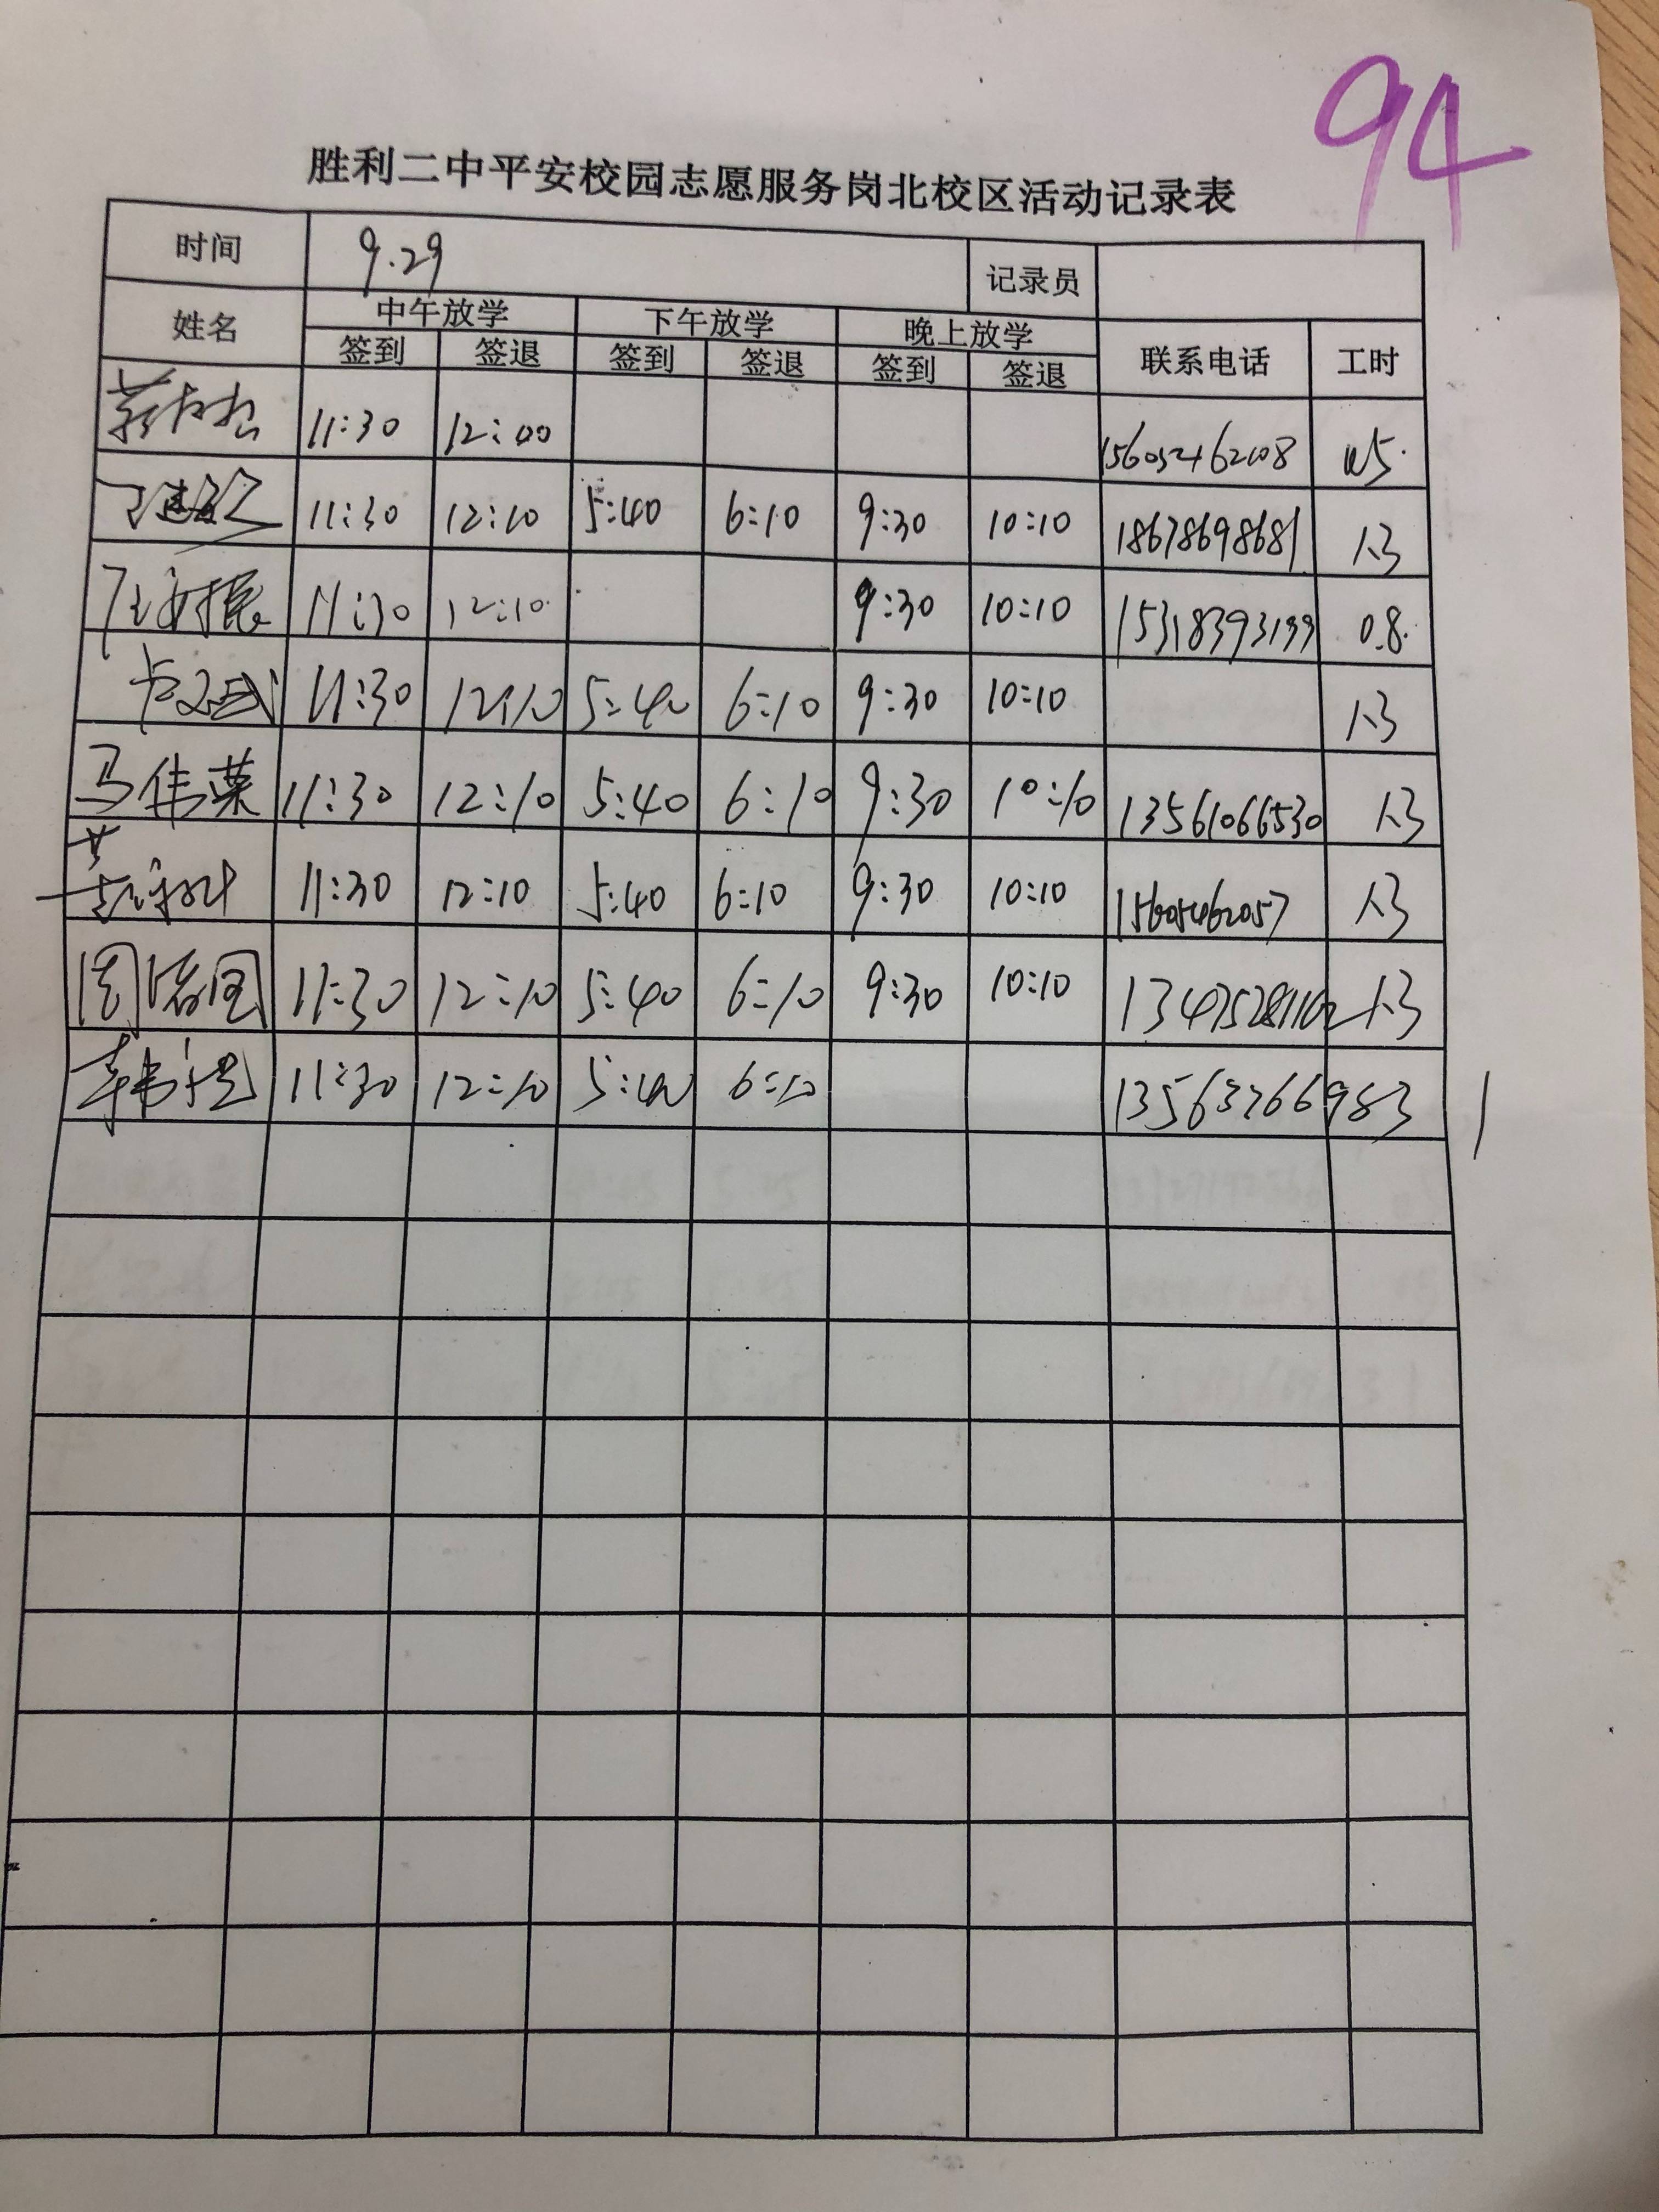 94
胜利二中平安校园志愿服务岗北校区活动记录表
时间 9.29 记录员
姓名 中午放学 下午放学 晚上放学 联系电话 工时
签到 签退 签到 签退 签到 签退
11:30 12:00 0.5
11:30 12:10 5:40 6:10 9:30 10:10 18678698681 1.3
11:30 12:10 9:30 10:10 15318393199 0.8
11:30 12:10 5:40 6:10 9:30 10:10 1.3
马伟荣 11:30 12:10 5:40 6:10 9:30 10:10 13561066530 1.3
11:30 12:10 5:40 6:10 9:30 10:10 15605462057 1.3
11:30 12:10 5:40 6:10 9:30 10:10 1.3
11:30 12:10 5:40 6:10 13563766983 1